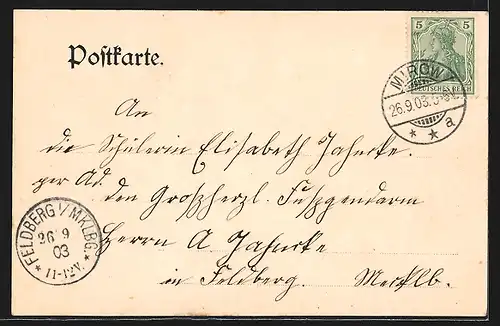 Postkarte.
5 5
DEUTSCHES REICH
MIROW
26.9.03.
* * a
An
die Schülerin Elisabeth Jahncke.
per Ad. den Großherzl. Fussgendarm
Herrn A Jahncke
in Feldberg. Mecklb.
FELDBERG I/MKLBG.
26 9
03
* 11-12V. *